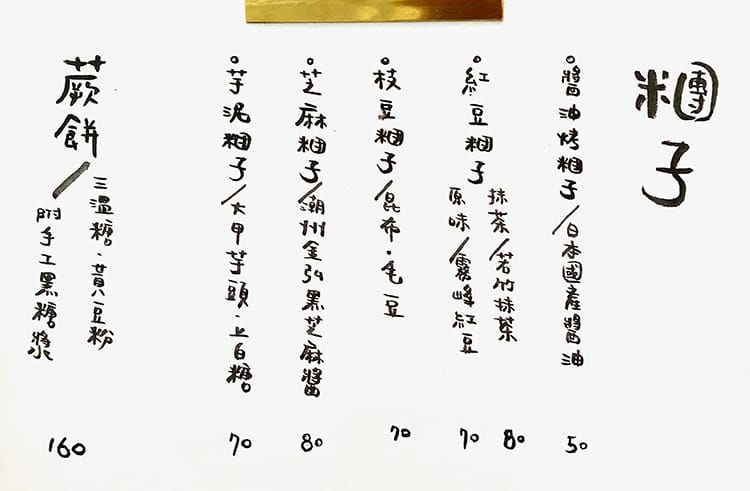 糰子
。醬油烤糰子/日本國產醬油 50
。紅豆糰子
抹茶/若竹抹茶 80
原味/霧峰紅豆 70
。枝豆糰子/昆布・毛豆 70
。芝麻糰子/潮州金弘黑芝麻醬 80
。芋泥糰子/大甲芋頭・上白糖 70
蕨餅/
三溫糖・黃豆粉
附手工黑糖漿 160